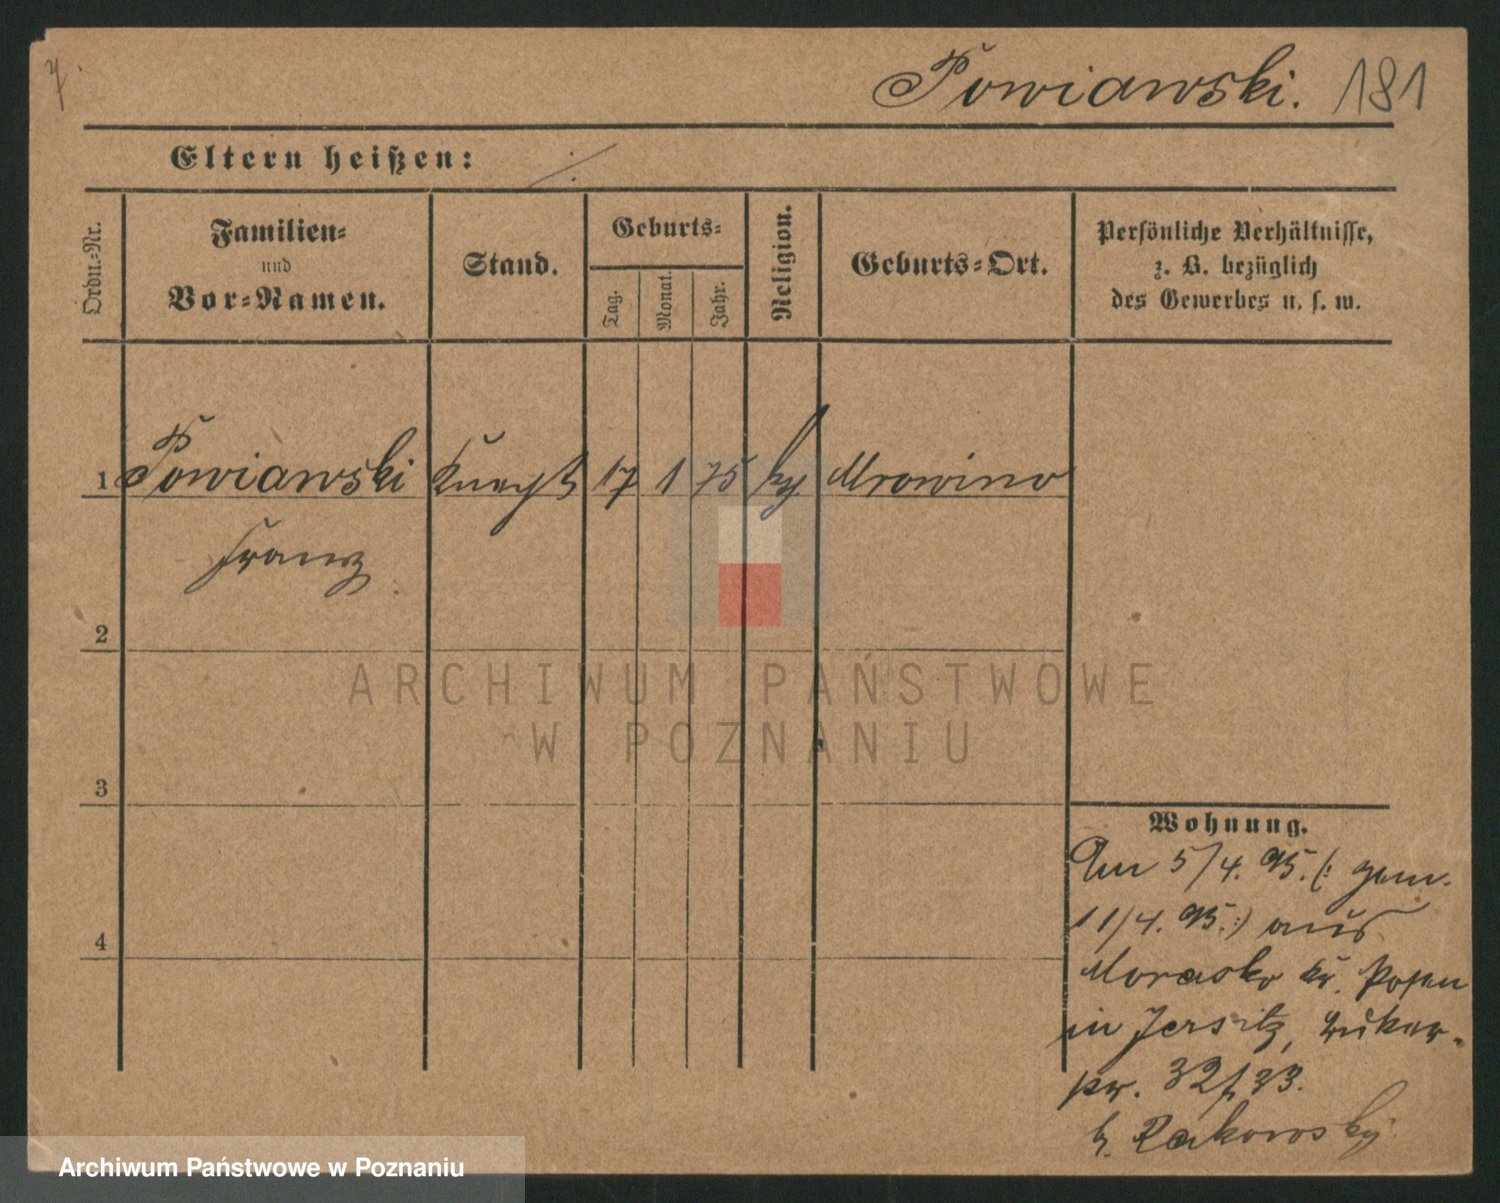 7.
Powiawski. 181
Eltern heißen: ./.
Ordn.-Nr.
Familien-
und
Vor-Namen.
Stand.
Geburts-
Tag.
Monat.
Jahr.
Religion.
Geburts-Ort.
Persönliche Verhältnisse,
z. B. bezüglich
des Gewerbes u. s. w.
1 Powiawski Knecht 17 1 75 Mrowino
Franz
2
3
4
Wohnung.
Am 5/4. 95. (: gem.
11/4. 95. :) aus
Morasko Kr. Posen
in Jersitz,
32/33.
b. Rakowsky
ARCHIWUM PAŃSTWOWE
W POZNANIU
Archiwum Państwowe w Poznaniu